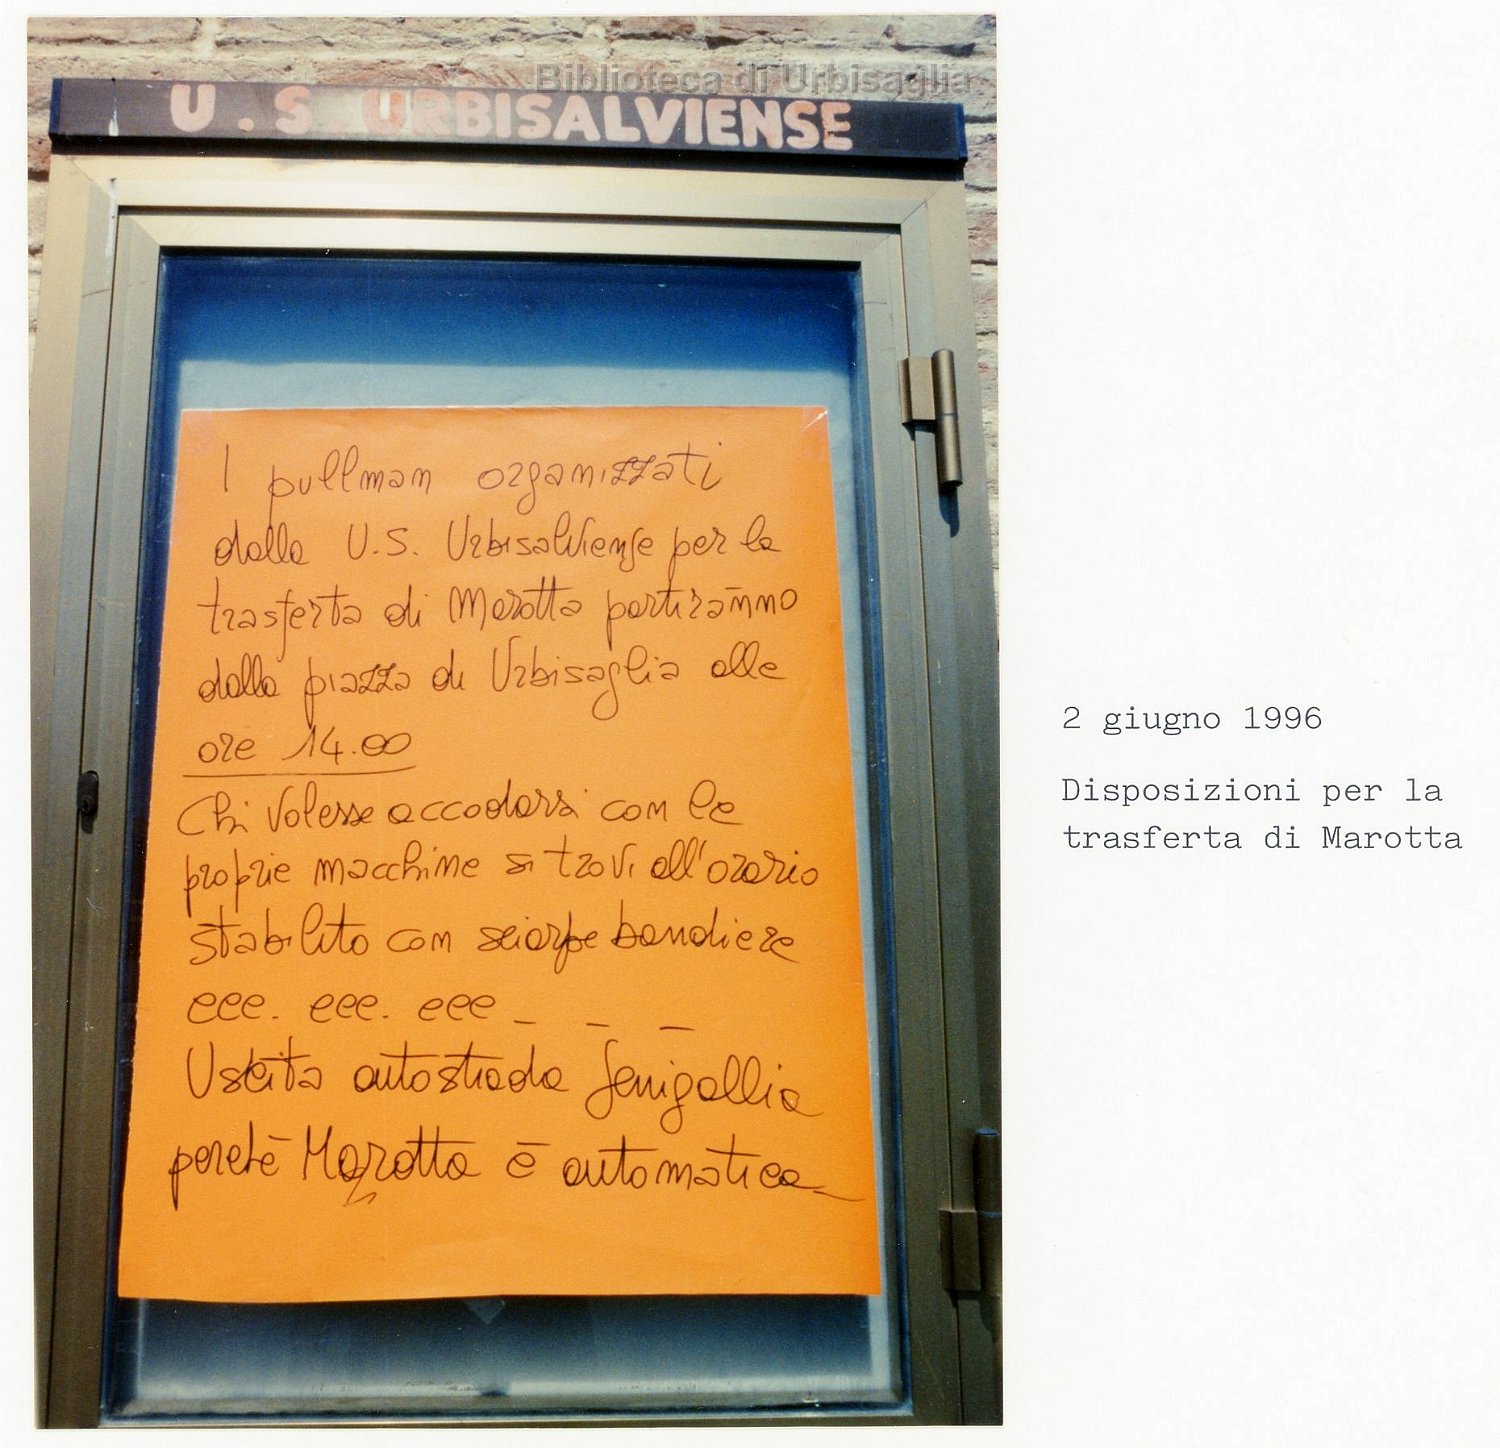 Biblioteca di Urbisaglia
U.S. URBISALVIENSE
I pullman organizzati
dalla U.S. Urbisalviense per la
trasferta di Marotta partiranno
dalla piazza di Urbisaglia alle
ore 14.00
Chi volesse accodarsi con le
proprie macchine si trovi all'orario
stabilito con sciarpe bandiere
ecc. ecc. ecc _ _ _
Uscita autostrada Senigallia
perchè Marotta è automatica_
2 giugno 1996
Disposizioni per la
trasferta di Marotta